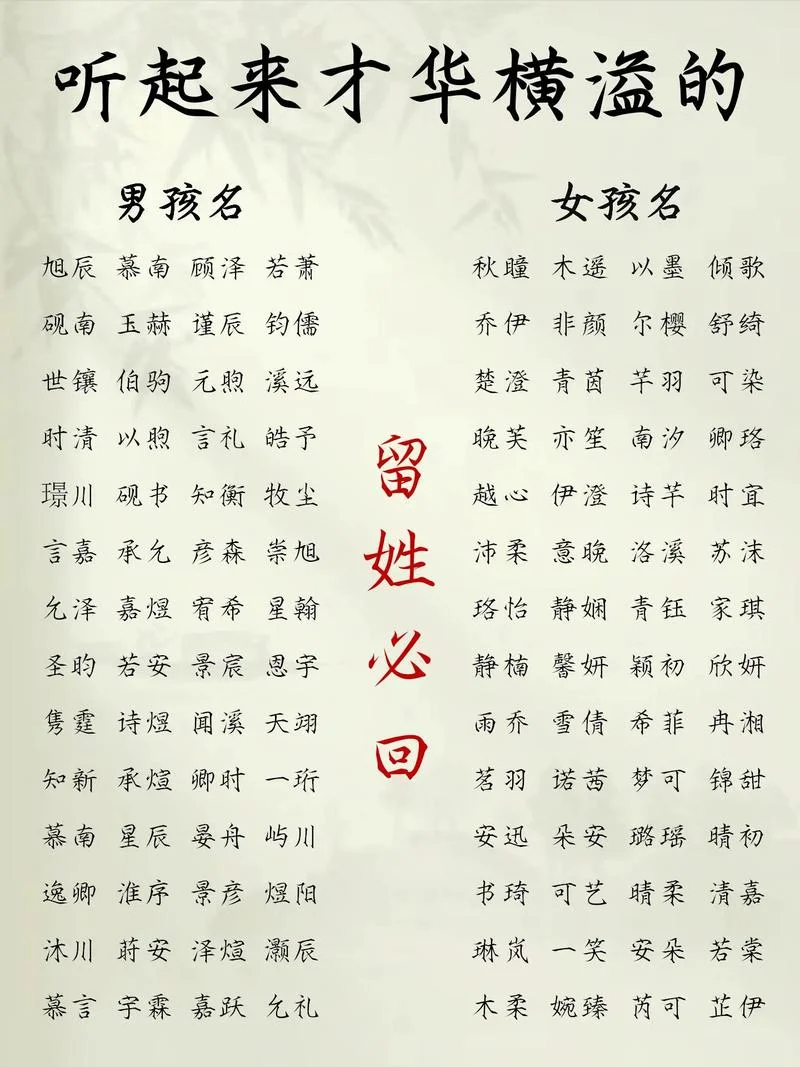 听起来才华横溢的
男孩名
旭辰 慕南 顾泽 若萧
砚南 玉赫 谨辰 钧儒
世镶 伯驹 元煦 溪远
时清 以煦 言礼 皓予
璟川 砚书 知衡 牧尘
言嘉 承允 彦森 崇旭
允泽 嘉煜 宥希 星翰
圣昀 若安 景宸 恩宇
隽霆 诗煜 闻溪 天翊
知新 承煊 卿时 一珩
慕南 星辰 晏舟 屿川
逸卿 淮序 景彦 煜阳
沐川 莳安 泽煊 灏辰
慕言 宇霖 嘉跃 允礼
留
姓
必
回
女孩名
秋瞳 木遥 以墨 倾歌
乔伊 非颜 尔樱 舒绮
楚澄 青茵 芊羽 可染
晚芙 亦笙 南汐 卿珞
越心 伊澄 诗芊 时宜
沛柔 意晚 洛溪 苏沫
珞怡 静娴 青钰 家琪
静楠 馨妍 颖初 欣妍
雨乔 雪倩 希菲 冉湘
茗羽 诺茜 梦可 锦甜
安迅 朵安 璐瑶 晴初
书琦 可艺 晴柔 清嘉
琳岚 一笑 安朵 若棠
木柔 婉臻 芮可 芷伊